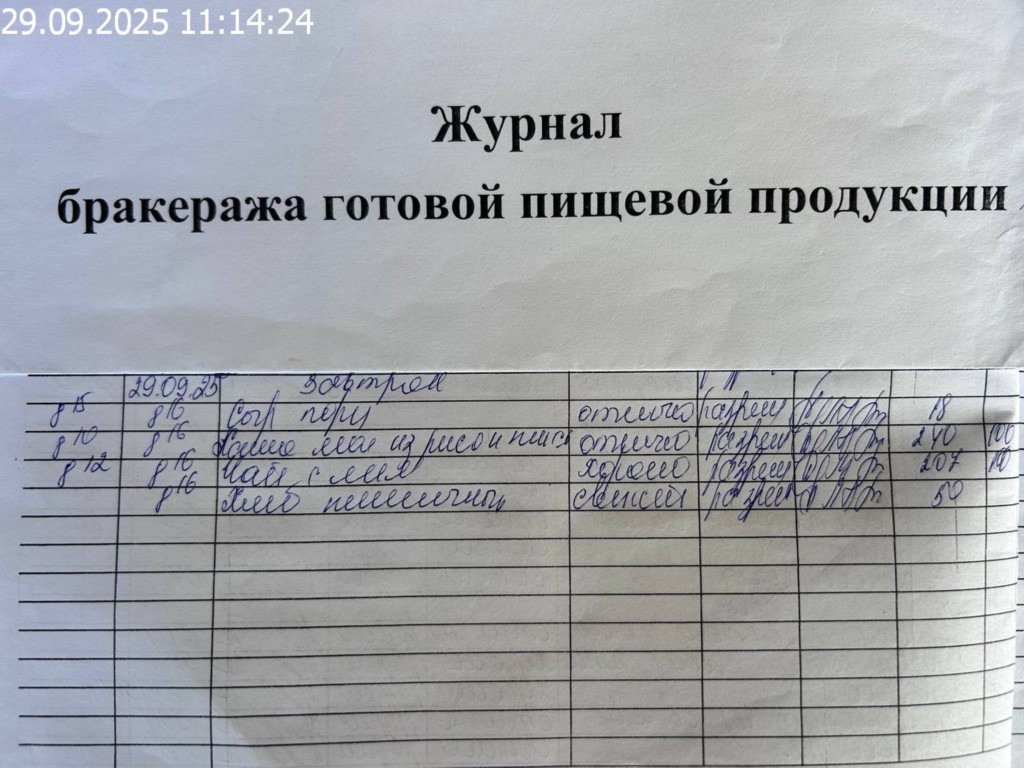 29.09.2025 11:14:24
Журнал
бракеража готовой пищевой продукции
29.09.25 Завтрак
8 15 8 16 Сыр отлично разреш 18
8 10 8 16 Каша из риса и отлично разреш 240 100
8 12 8 16 Чай с хорошо разреш 207 100
8 16 Хлеб пшеничный свежий разреш 50